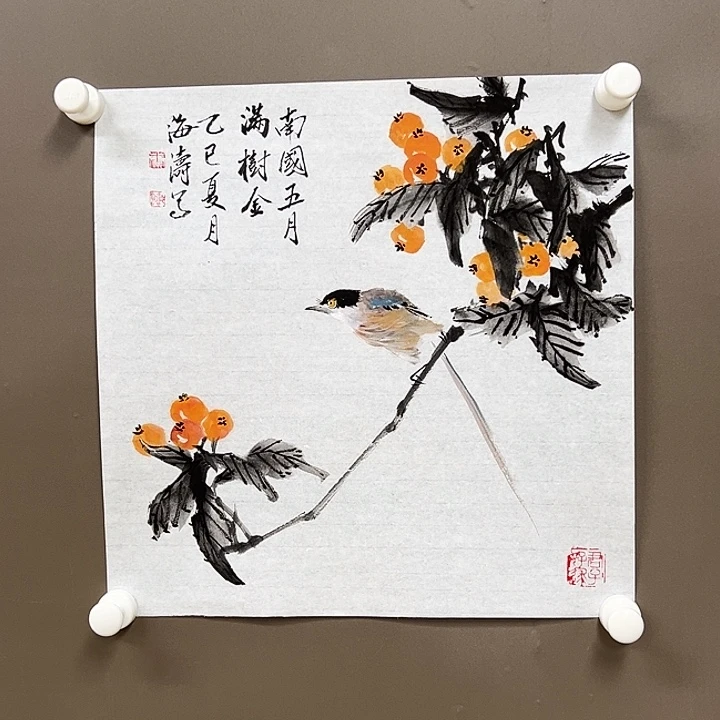 南國五月
滿樹金
乙巳夏月
海濤写